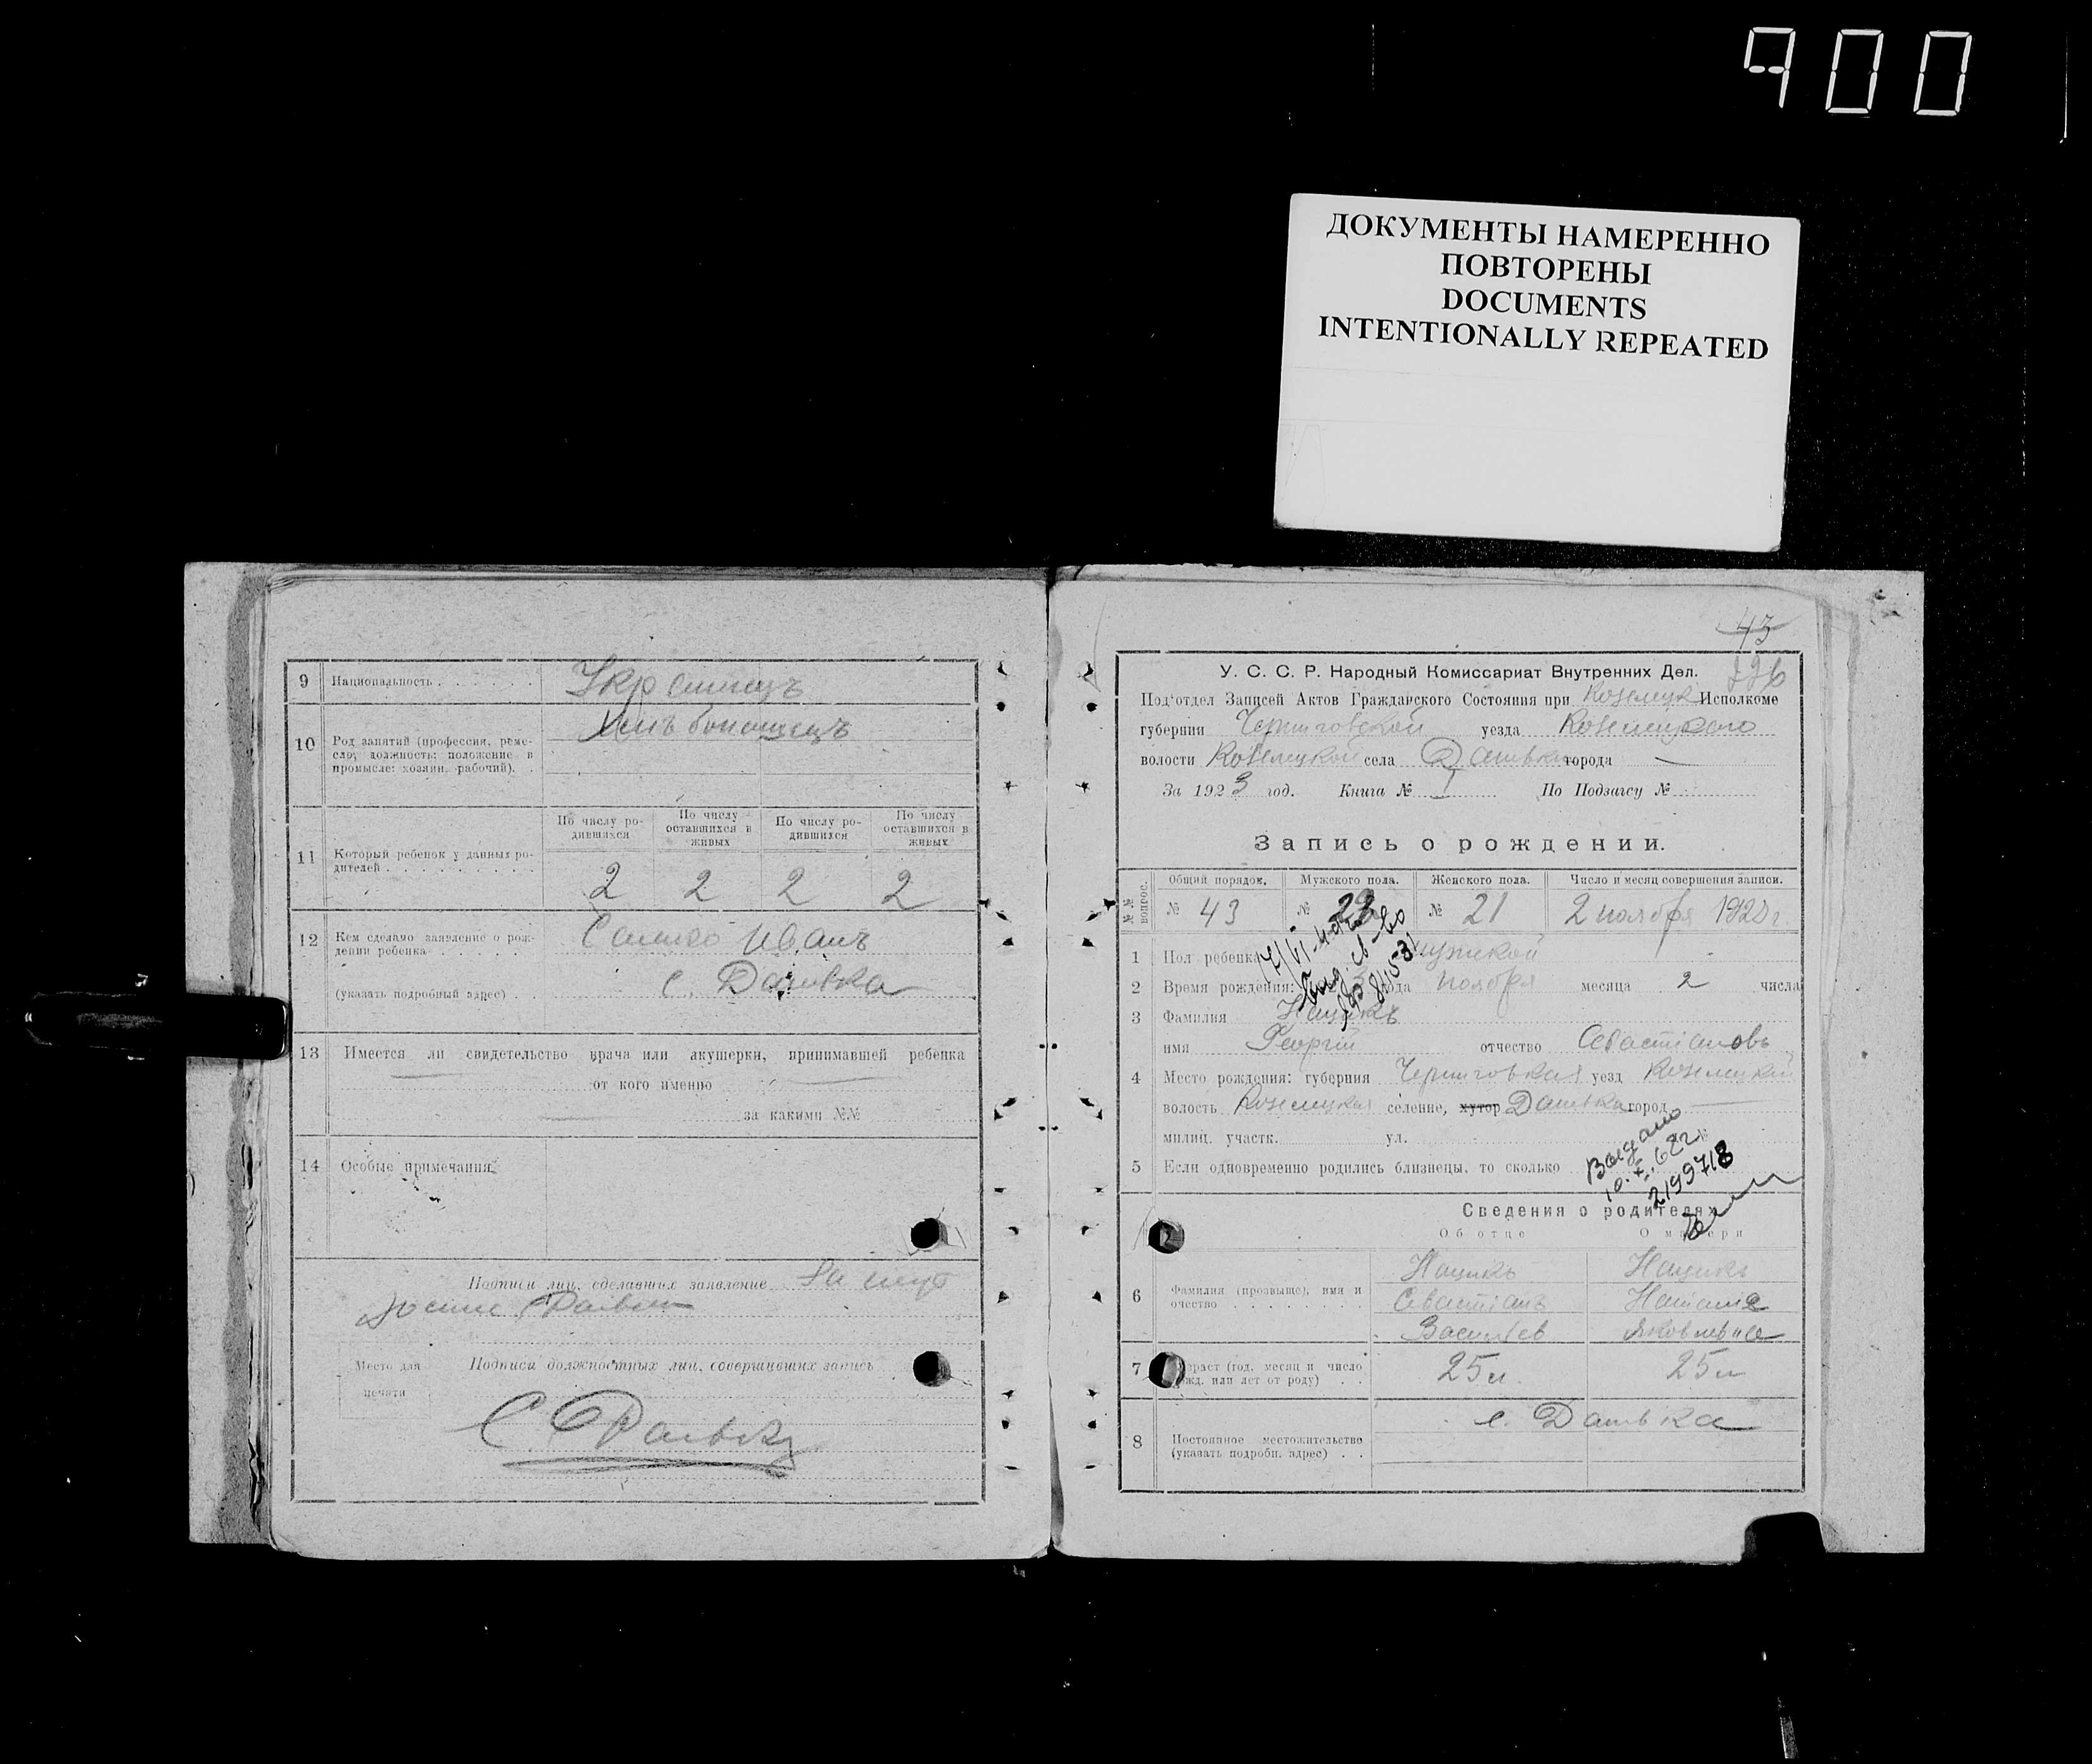 900
ДОКУМЕНТЫ НАМЕРЕННО
ПОВТОРЕНЫ
DOCUMENTS
INTENTIONALLY REPEATED
9 Национальность Украинецъ
10 Род занятий (профессия, реме-
сло; должность; положение в
промысле: хозяин, рабочий). Хлѣбопашецъ
По числу ро-
дившихся
По числу
оставшихся в
живых
По числу ро-
дившихся
По числу
оставшихся в
живых
11 Который ребенок у данных ро-
дителей 2 2 2 2
12 Кем сделано заявление о рож-
дении ребенка Иванъ
(указать подробный адрес) с. Даневка
13 Имеется ли свидетельство врача или акушерки, принимавшей ребенка
от кого именно
за какими №№
14 Особые примечания
Подписи лиц, сделавших заявление За него
Подписи должностных лиц, совершивших запись
Место для
печати
43
У. С. С. Р. Народный Комиссариат Внутренних Дел.
Под'отдел Записей Актов Гражданского Состояния при Козелецк Исполкоме
губернии Черниговской уезда Козелецкого
волости Козелецкой села Даневка города —
За 1923 год. Книга № I По Подзагсу №
Запись о рождении.
№№ вопрос.
Общий порядок. Мужского пола. Женского пола. Число и месяц совершения записи.
№ 43 № 22 № 21 2 ноября 1923 г.
1 Пол ребенка мужской
2 Время рождения: года ноября месяца 2 числа
3 Фамилия Нацикъ
имя Георгій отчество Севастіановъ
4 Место рождения: губерния Черниговская уезд Козелецкий
волость Козелецкая селение, хутор Даневка город —
милиц. участк. ул.
5 Если одновременно родились близнецы, то сколько
Выдано
10.X.68г.
2199718
Сведения о родителях
Об отце О матери
6 Фамилия (прозвище), имя и
очество
Нацикъ Нацикъ
Севастіанъ Наталия
Васильев Яковлевна
7 Возраст (год, месяц и число
рожд. или лет от роду) 25 л. 25 л
8 Постоянное местожительство
(указать подробн. адрес) с. Даневка